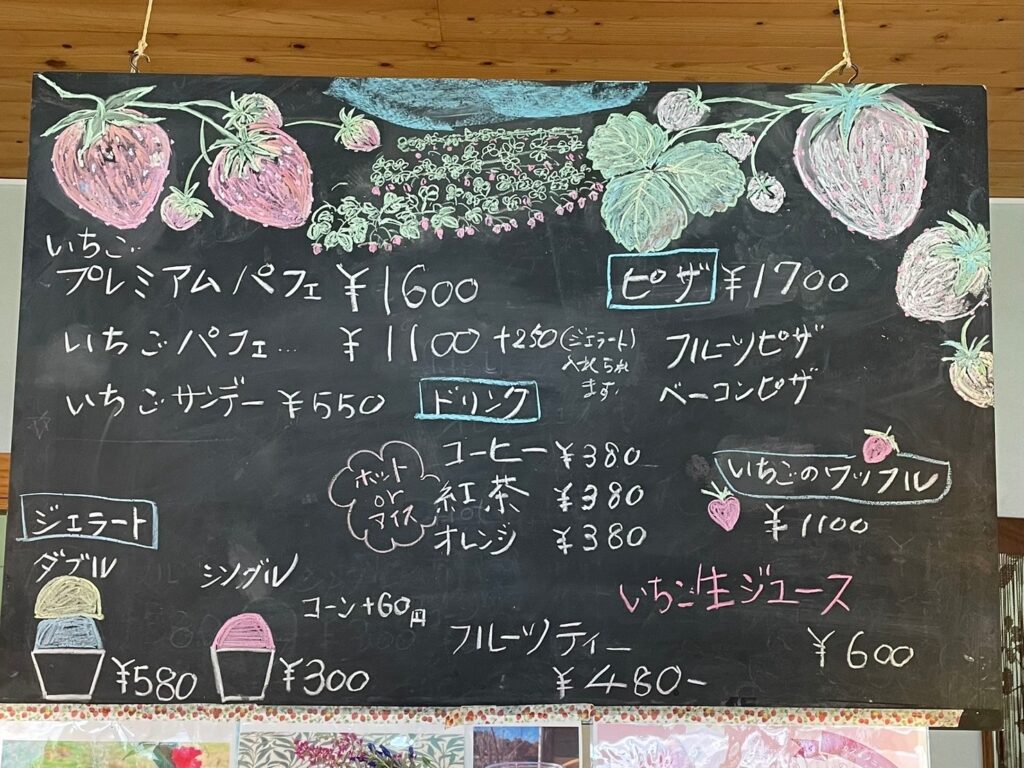 いちご
プレミアムパフェ ¥1600
いちごパフェ… ¥1100 +250(ジェラート)
入れられ
ます。
いちごサンデー ¥550
ピザ ¥1700
フルーツピザ
ベーコンピザ
ドリンク
ホット
or
アイス
コーヒー ¥380
紅茶 ¥380
オレンジ ¥380
いちごのワッフル
¥1100
ジェラート
ダブル
¥580
シングル
コーン+60円
¥300
フルーツティー
¥480-
いちご生ジュース
¥600